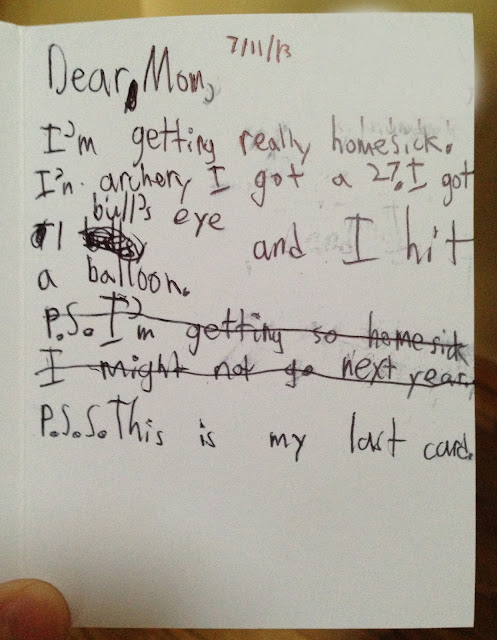 7/11/13
Dear, Mom,
I'm getting really homesick.
I'n archery I got a 27. I got
1 bull's eye and I hit
a balloon.
P.S. I'm getting so homesick
I might not go next year.
P.S.S. This is my last card.